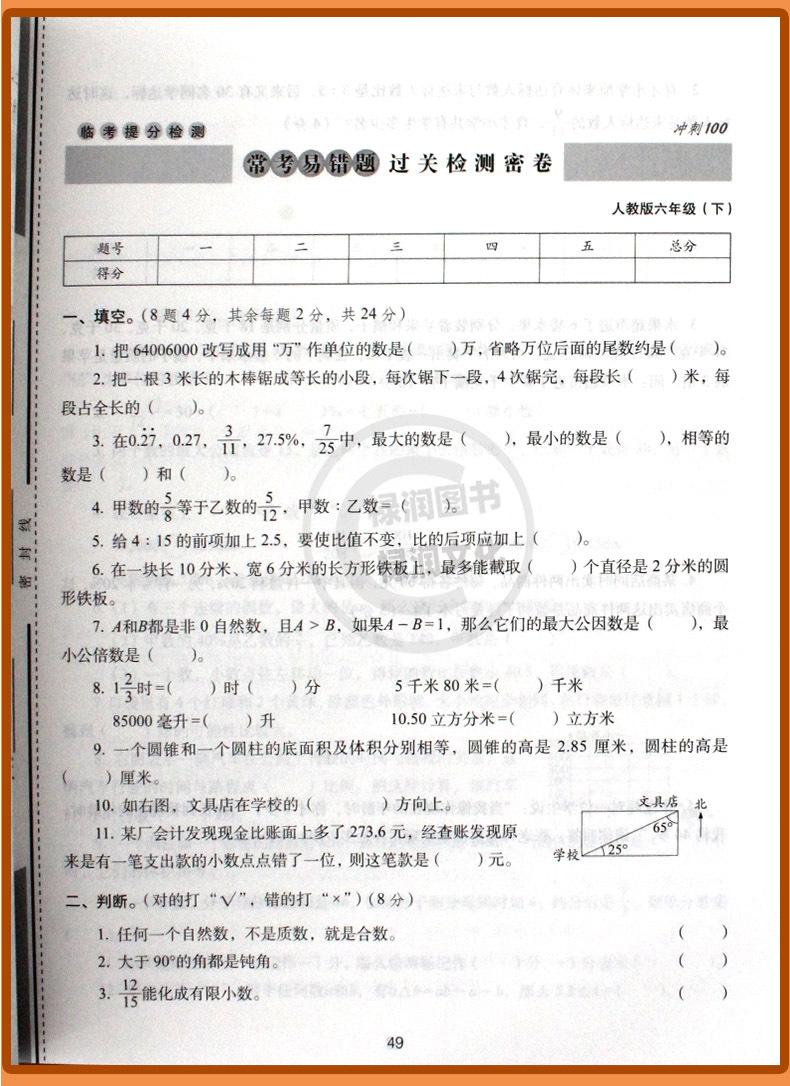 临考提分检测
冲刺100
常考易错题 过关检测密卷
人教版六年级(下)
题号 一 二 三 四 五 总分
得分
一、填空。(8题4分，其余每题2分，共24分)
1. 把64006000改写成用“万”作单位的数是( )万；省略万位后面的尾数约是( )。
2. 把一根3米长的木棒锯成等长的小段，每次锯下一段，4次锯完，每段长( )米，每
段占全长的( )。
3. 在0.2̇7̇，0.27，3/11，27.5%，7/25中，最大的数是( )，最小的数是( )，相等的
数是( )和( )。
4. 甲数的5/8等于乙数的5/12，甲数：乙数=( )。
5. 给4：15的前项加上2.5，要使比值不变，比的后项应加上( )。
6. 在一块长10分米、宽6分米的长方形铁板上，最多能截取( )个直径是2分米的圆
形铁板。
7. A和B都是非0自然数，且A > B，如果A－B=1，那么它们的最大公因数是( )，最
小公倍数是( )。
8. 1 2/3时=( )时( )分 5千米80米=( )千米
85000毫升=( )升 10.50立方分米=( )立方米
9. 一个圆锥和一个圆柱的底面积及体积分别相等，圆锥的高是2.85厘米，圆柱的高是
( )厘米。
10. 如右图，文具店在学校的( )方向上。
11. 某厂会计发现现金比账面上多了273.6元，经查账发现原
来是有一笔支出款的小数点点错了一位，则这笔款是( )元。
文具店 北
65°
学校 25°
二、判断。(对的打“√”，错的打“×”)(8分)
1. 任何一个自然数，不是质数，就是合数。 ( )
2. 大于90°的角都是钝角。 ( )
3. 12/15能化成有限小数。 ( )
49
密封线
绿润图书
绿润文化